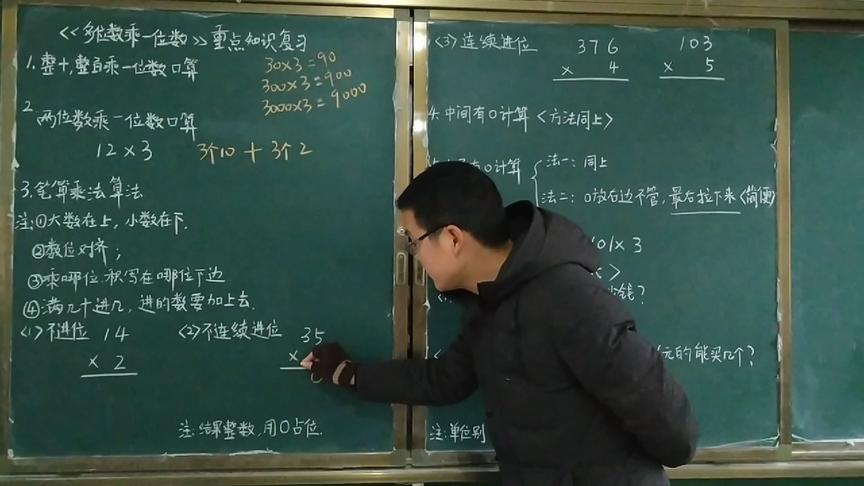 《多位数乘一位数》重点知识复习
1.整十,整百乘一位数口算
30×3=90
300×3=900
3000×3=9000
2.两位数乘一位数口算
12×3 3个10+3个2
3.笔算乘法算法
注:①大数在上,小数在下.
②数位对齐;
③乘哪位.积写在哪位下边
④满几十进几,进的数要加上去.
<1>不进位 14
× 2
<2>不连续进位 35
×
注:结果整数,用0占位.
<3>连续进位 376
× 4
103
× 5
4.中间有0计算<方法同上>
有0计算
法一:同上
法二:0放右边不管,最后拉下来<简便>
01×3
钱?
元的能买几个?
注:单位别